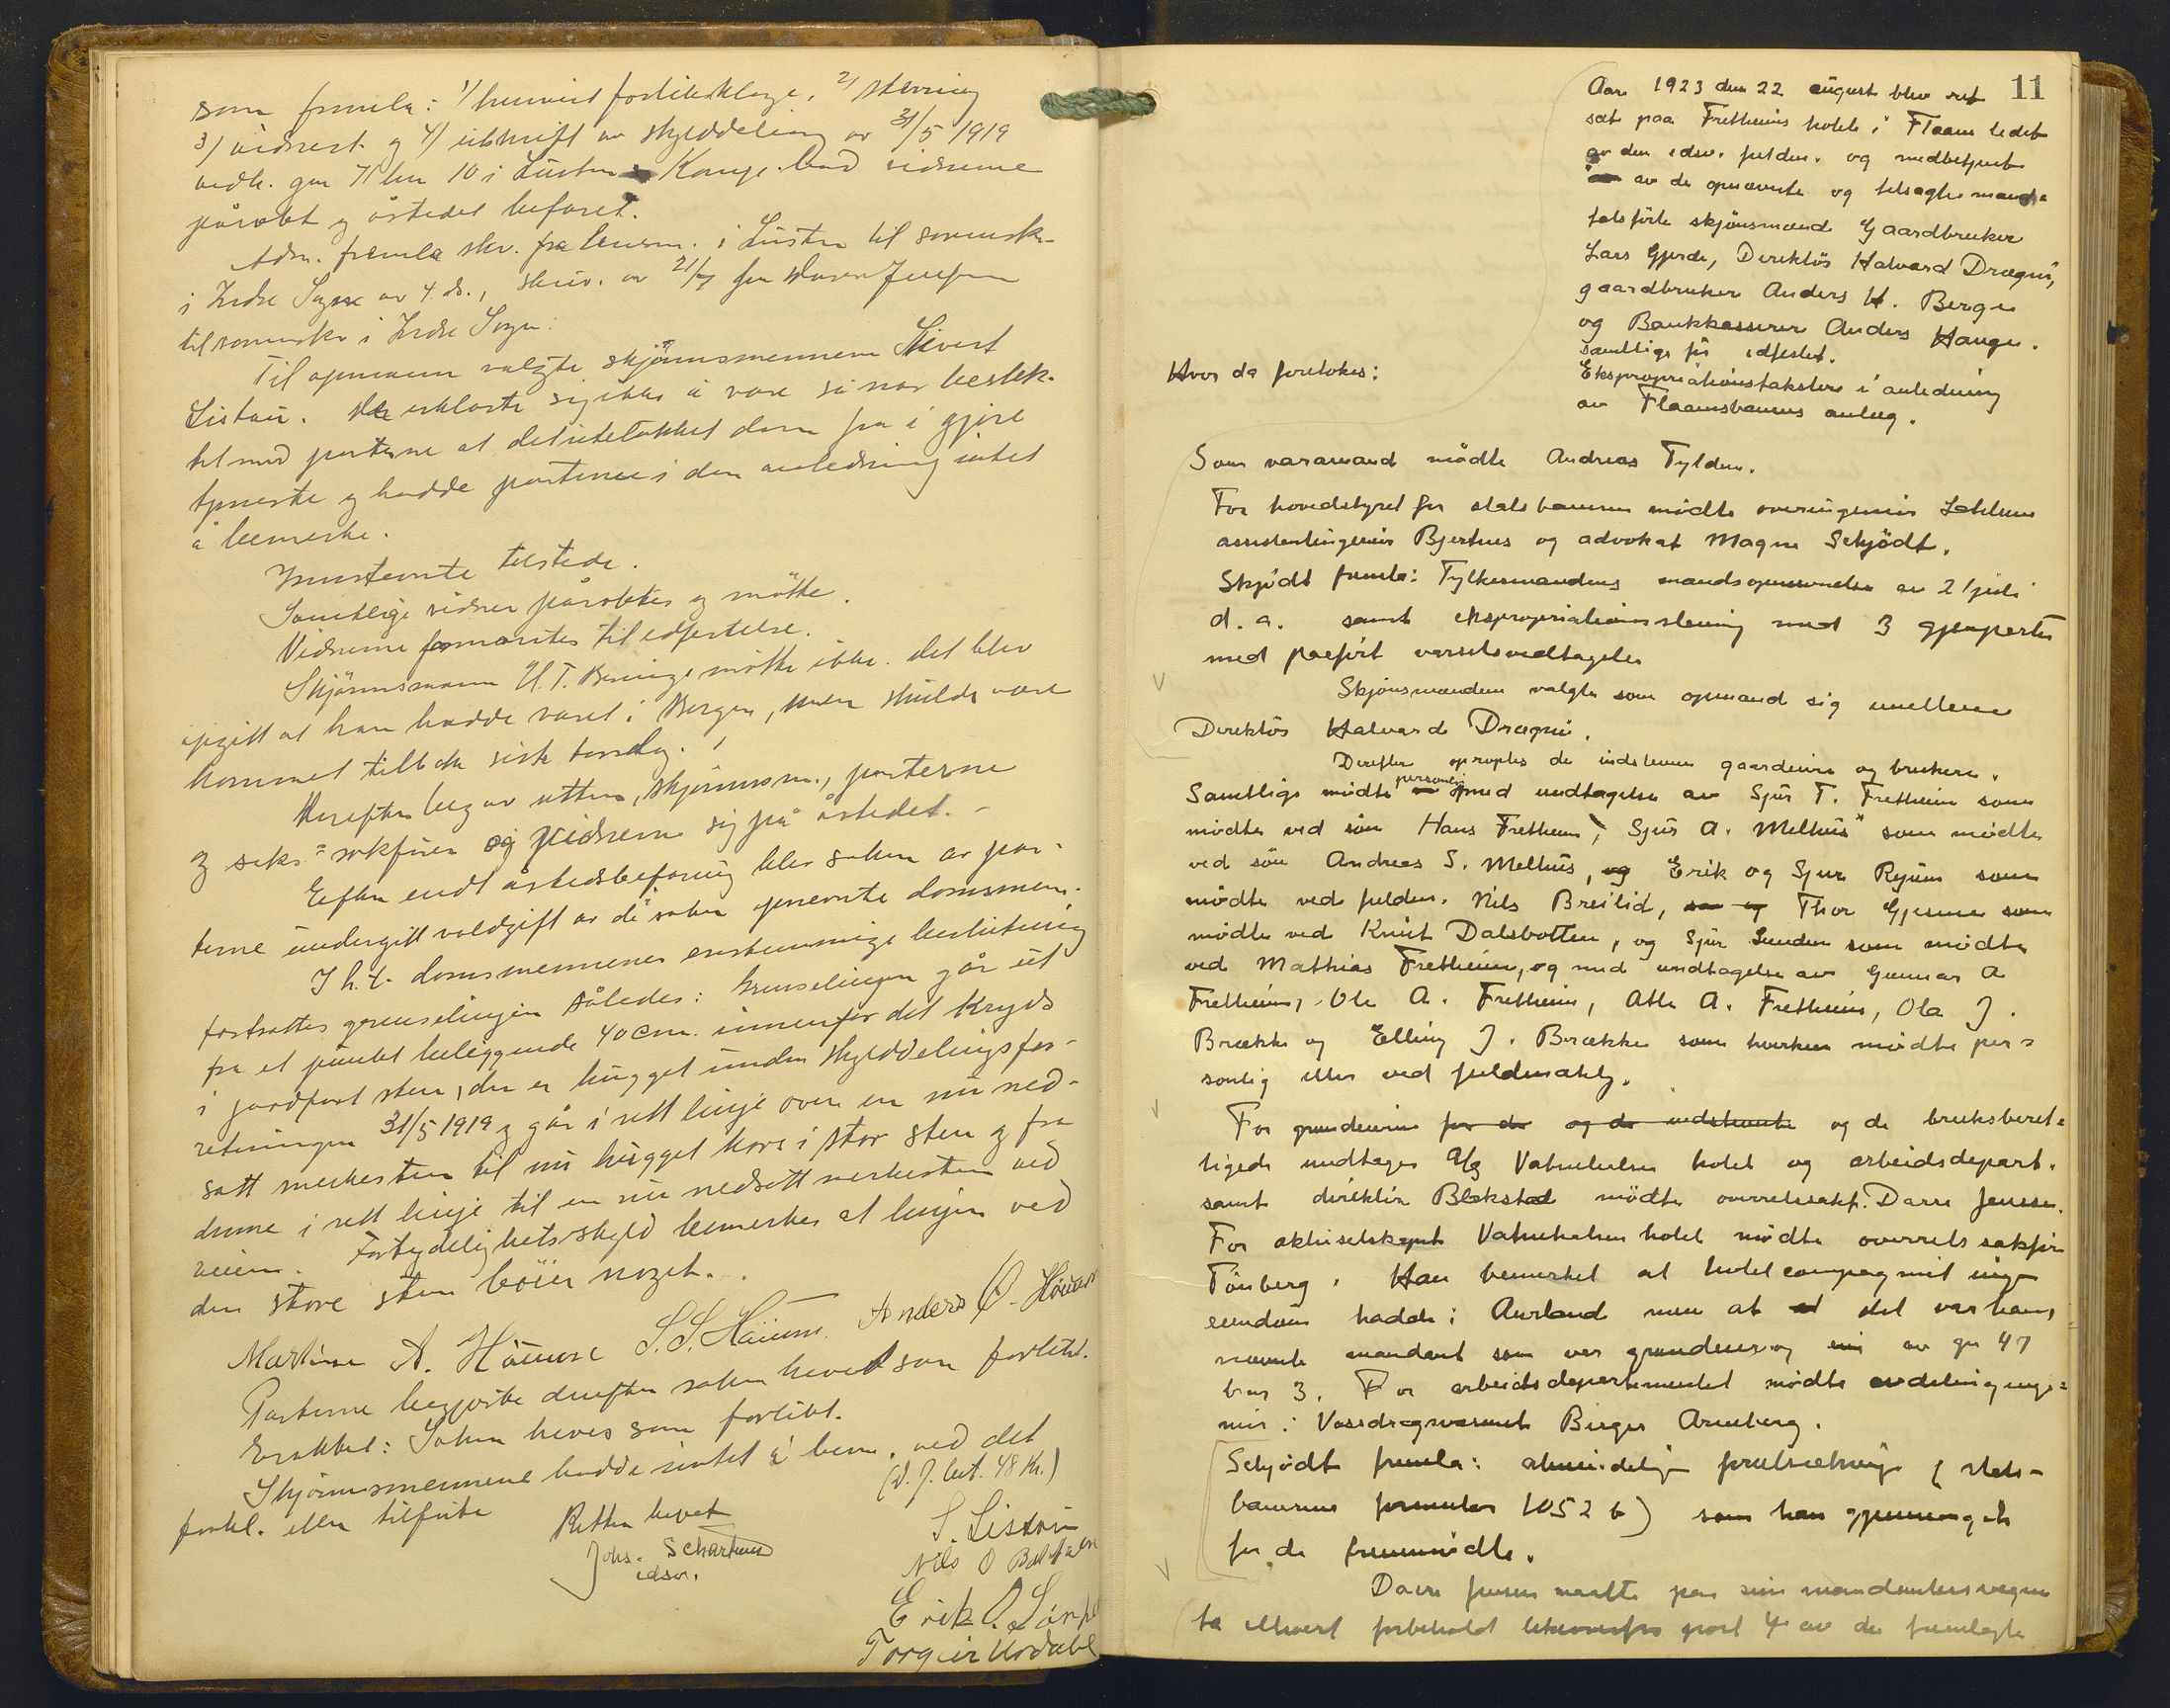 som fremla: 1/ henvist forliksklage, 2/ stevning
3/ vidnest. og 4/ utskrift av skylddeling av 31/5 1919
vedk. gnr 71 bnr 10 i Luster. vidnerne
påropt og åstedet befaret.
Adm. fremla skr. fra lensm. i Luster til sorenskr.
i Indre Sogn av 4. ds., skriv. av 21/7 fra Jensen
til sorenskr i Indre Sogn.
Til opmann valgte skjønnsmennene Sivert
Listau. erklærte sig ikke å være så nær beslek-
tet med parterne at det utelukket dem fra å gjøre
tjeneste og hadde parterne i den anledning intet
å bemerke.
Innstevnte tilstede.
Samtlige vidner påroptes og møtte.
Vidnerne formantes til edfestelse.
Skjønnsmann H. T. møtte ikke. Det blev
opgitt at han hadde været i Bergen, men skulde være
kommet tilbake siste torsdag.
Derefter begav retten, skjønnsm., parterne
og saks=søkfører og vidnerne sig på åstedet. –
Efter endt åstedsbefaring blev saken av par-
terne undergitt voldgift av de i saken opnevnte domsmenn.
I h.t. domsmennenes enstemmige beslutning
fastsattes grenselinjen således: Grenselinjen går ut
fra et punkt beliggende 40 cm. innenfor det kryds
i jordfast sten, der er hugget under skylddelingsfor-
retningen 31/5 1919 og går i rett linje over en nu ned-
satt merkesten til nu hugget kors i stor sten og fra
denne i rett linje til en nu nedsatt merkesten ved
veien. Fortydelighets skyld bemerkes at linjen ved
den store sten bøier noget.
Martinus A. Høium S. S. Høium. Anders O. Høium
Parterne begjærte derefter saken hevet som forlikt.
Erakket: Saken heves som forlikt.
Skjønnsmennene hadde intet å bem. ved det
(d. J. 48 Kr.)
forkl. eller tilførte
Retten hevet
Johs. Scharnu
edsv.
S. Listau
Nils O
Erik O.
Torgeir Urdahl
11
Aar 1923 den 22 august blev ret
sat paa Fretheims hotel i Flaam ledet
av den edsv. fuldm. og medbetjent
av de opnævnte og tilsagte mand=
talsførte skjønsmænd Gaardbruker
Lars Gjerde, Direktør Halvard Drægni,
gaardbruker Anders H. Berge
og Bankkasserer Anders Hauge.
samtlige før edfestet.
Hvor da foretokes:
Ekspropriationstakster i anledning
av Flaamsbanens anlæg.
Som varamand mødte Andreas Tylden.
For hovedstyret for statsbanerne mødte overingeniør
assistentingeniør Bjerknes og advokat Magne Schjødt.
Skjødt fremla: Fylkesmandens mandsopnævnelse av 21 juli
d. a. samt ekspropriationsstevning med 3 gjenparter
med paaført varselsvedtagelse
Skjønsmændene valgte som opmand sig imellem
Direktør Halvard Drægni.
Derefter oproptes de indstevnte gaardeiere og brukere.
Samtlige mødte personlig med undtagelse av Sjur T. Fretheim som
mødte ved søn Hans Fretheim, Sjur A. Melhus som mødte
ved søn Andreas S. Melhus, og Erik og Sjur Ryum som
mødte ved fuldm. Nils Breilid, som og Thor Gjesme som
mødte ved Knut Dalsbotten, og Sjur Sunden som mødte
ved Mathias Fretheim, og med undtagelse av Gunnar A
Fretheim, Ole A. Fretheim, Atle A. Fretheim, Ola J.
Brække og Elling J. Brække som hverken mødte per=
sonlig eller ved fuldmægtig.
For grundeierne for de og de indstevnte og de bruksberet=
tigede undtagen A/S Vatnehalsen hotel og arbeidsdepart.
samt direktør Blekstad mødte overretssakf. Darre Jenssen.
For aktieselskapet Vatnehalsen hotel mødte overrets sakfør
Tønberg. Han bemerket at hotelcompagniet ingen
eiendom hadde i Aurland men at det var hans
nævnte mandant som var grundeier og av gn 47
bnr 3. For arbeidsdepartementet mødte avdelingsinge=
niør i Vassdragsvæsenet Birger Arneberg.
Schjødt fremla: almindelige forutsætninger (stats-
banernes formular 1052 b) som han gjennemgik
for de fremmødte.
Darre Jensen maatte paa sine mandanters vegne
ta ethvert forbehold likeoverfor post 4 av de fremlagte